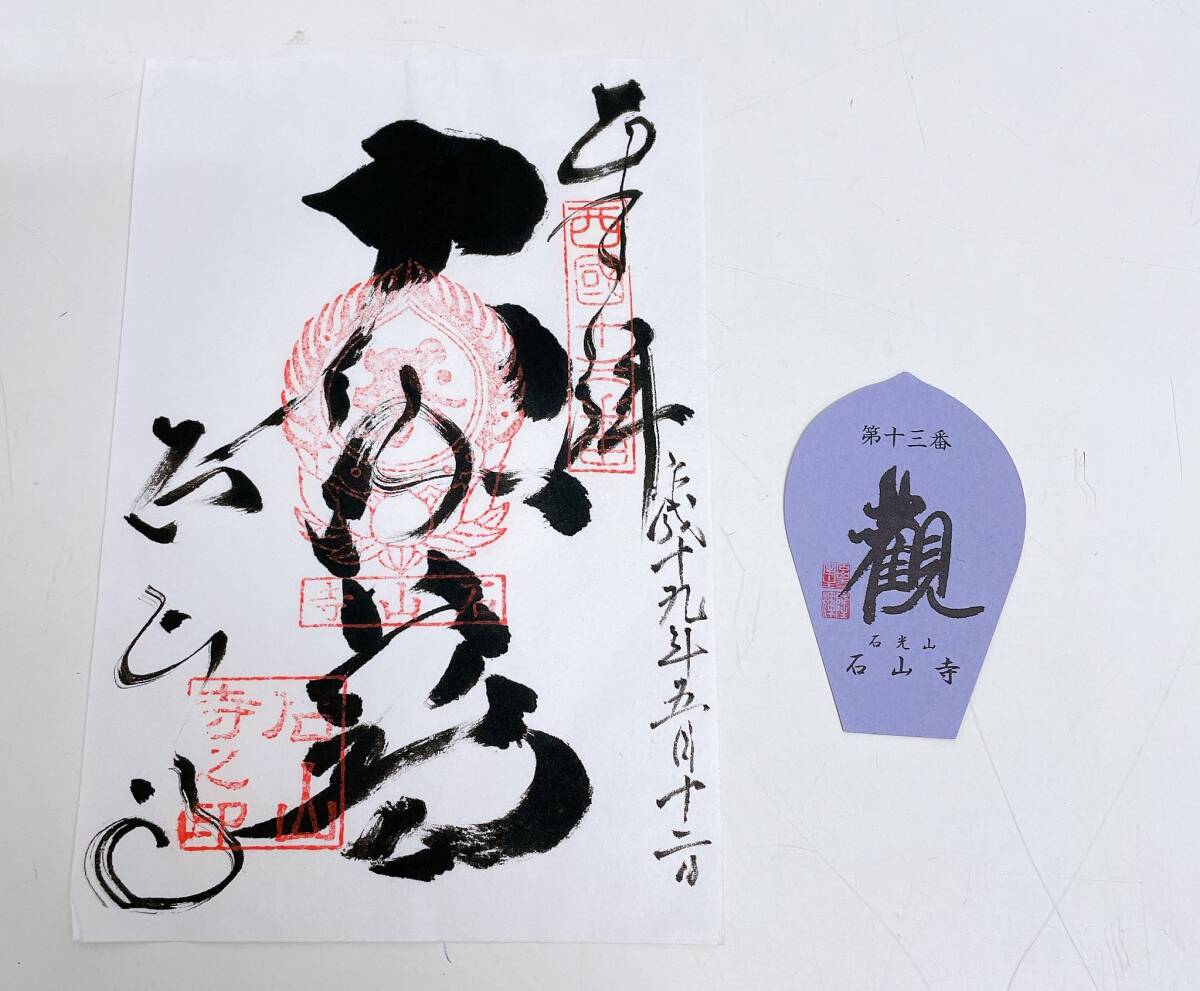 奉拝
西國十三番
平成十九年五月十二日
大伽藍
石山寺
石山寺
石山寺之印
第十三番
觀
石光山
石山寺